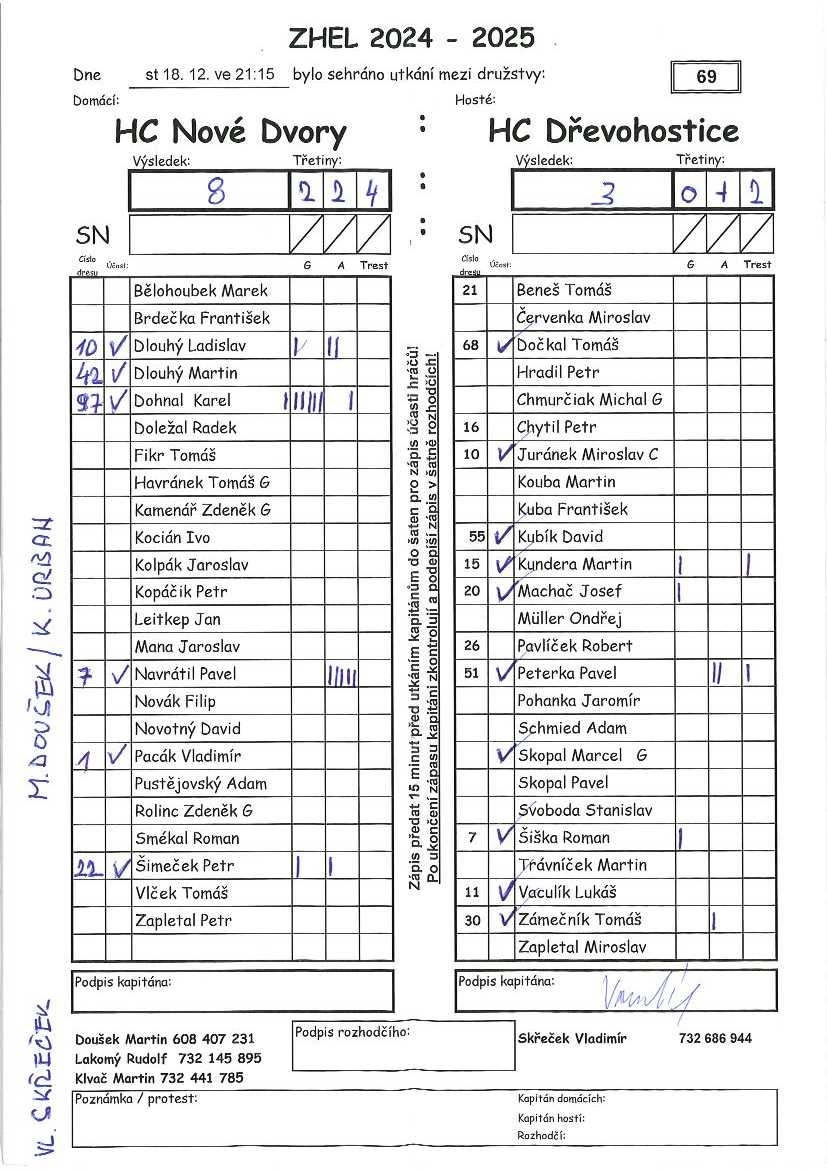 ZHEL 2024 - 2025
Dne st 18. 12. ve 21:15 bylo sehráno utkání mezi družstvy: 69
Domácí: Hosté:
HC Nové Dvory : HC Dřevohostice
Výsledek: Třetiny: : Výsledek: Třetiny:
8 2 2 4 3 0 1 2
SN : SN
Číslo dresu Účast: G A Trest Číslo dresu Účast: G A Trest
Bělohoubek Marek 21 Beneš Tomáš
Brdečka František Červenka Miroslav
10 ✓ Dlouhý Ladislav | || 68 ✓ Dočkal Tomáš
42 ✓ Dlouhý Martin Hradil Petr
97 ✓ Dohnal Karel | Chmurčiak Michal G
Doležal Radek 16 Chytil Petr
Fikr Tomáš 10 ✓ Juránek Miroslav C
Havránek Tomáš G Kouba Martin
Kamenář Zdeněk G Kuba František
Kocián Ivo 55 ✓ Kubík David
Kolpák Jaroslav 15 ✓ Kundera Martin | |
Kopáčik Petr 20 ✓ Machač Josef |
Leitkep Jan Müller Ondřej
Mana Jaroslav 26 Pavlíček Robert
7 ✓ Navrátil Pavel ||||| 51 ✓ Peterka Pavel || |
Novák Filip Pohanka Jaromír
Novotný David Schmied Adam
1 ✓ Pacák Vladimír ✓ Skopal Marcel G
Pustějovský Adam Skopal Pavel
Rolinc Zdeněk G Svoboda Stanislav
Smékal Roman 7 ✓ Šiška Roman |
22 ✓ Šimeček Petr | | Trávníček Martin
Vlček Tomáš 11 ✓ Vaculík Lukáš
Zapletal Petr 30 ✓ Zámečník Tomáš |
Zapletal Miroslav
Zápis předat 15 minut před utkáním kapitánům do šaten pro zápis účasti hráčů!
Po ukončení zápasu kapitáni zkontrolují a podepíší zápis v šatně rozhodčích!
M. DOUŠEK / K. URBAN
VL. SKŘEČEK
Podpis kapitána: Podpis kapitána:
Doušek Martin 608 407 231 Podpis rozhodčího: Skřeček Vladimír 732 686 944
Lakomý Rudolf 732 145 895
Klvač Martin 732 441 785
Poznámka / protest: Kapitán domácích:
Kapitán hostí:
Rozhodčí: